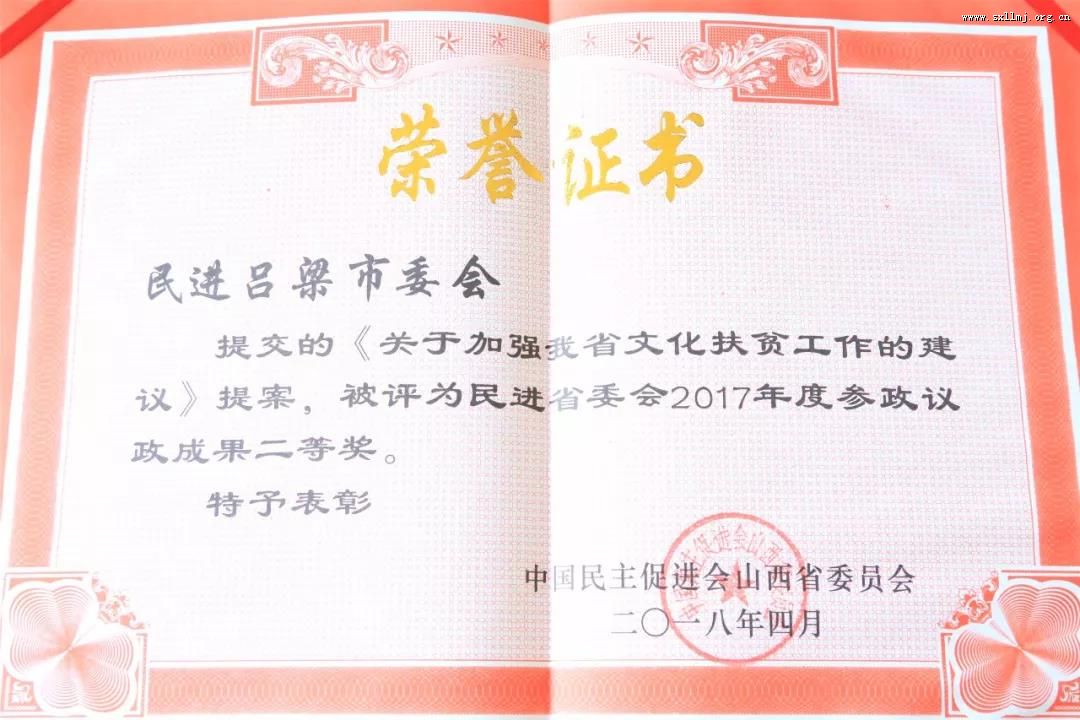 www.sxllmj.org.cn
荣誉证书
民进吕梁市委会
提交的《关于加强我省文化扶贫工作的建
议》提案，被评为民进省委会2017年度参政议
政成果二等奖。
特予表彰
中国民主促进会山西省委员会
二〇一八年四月